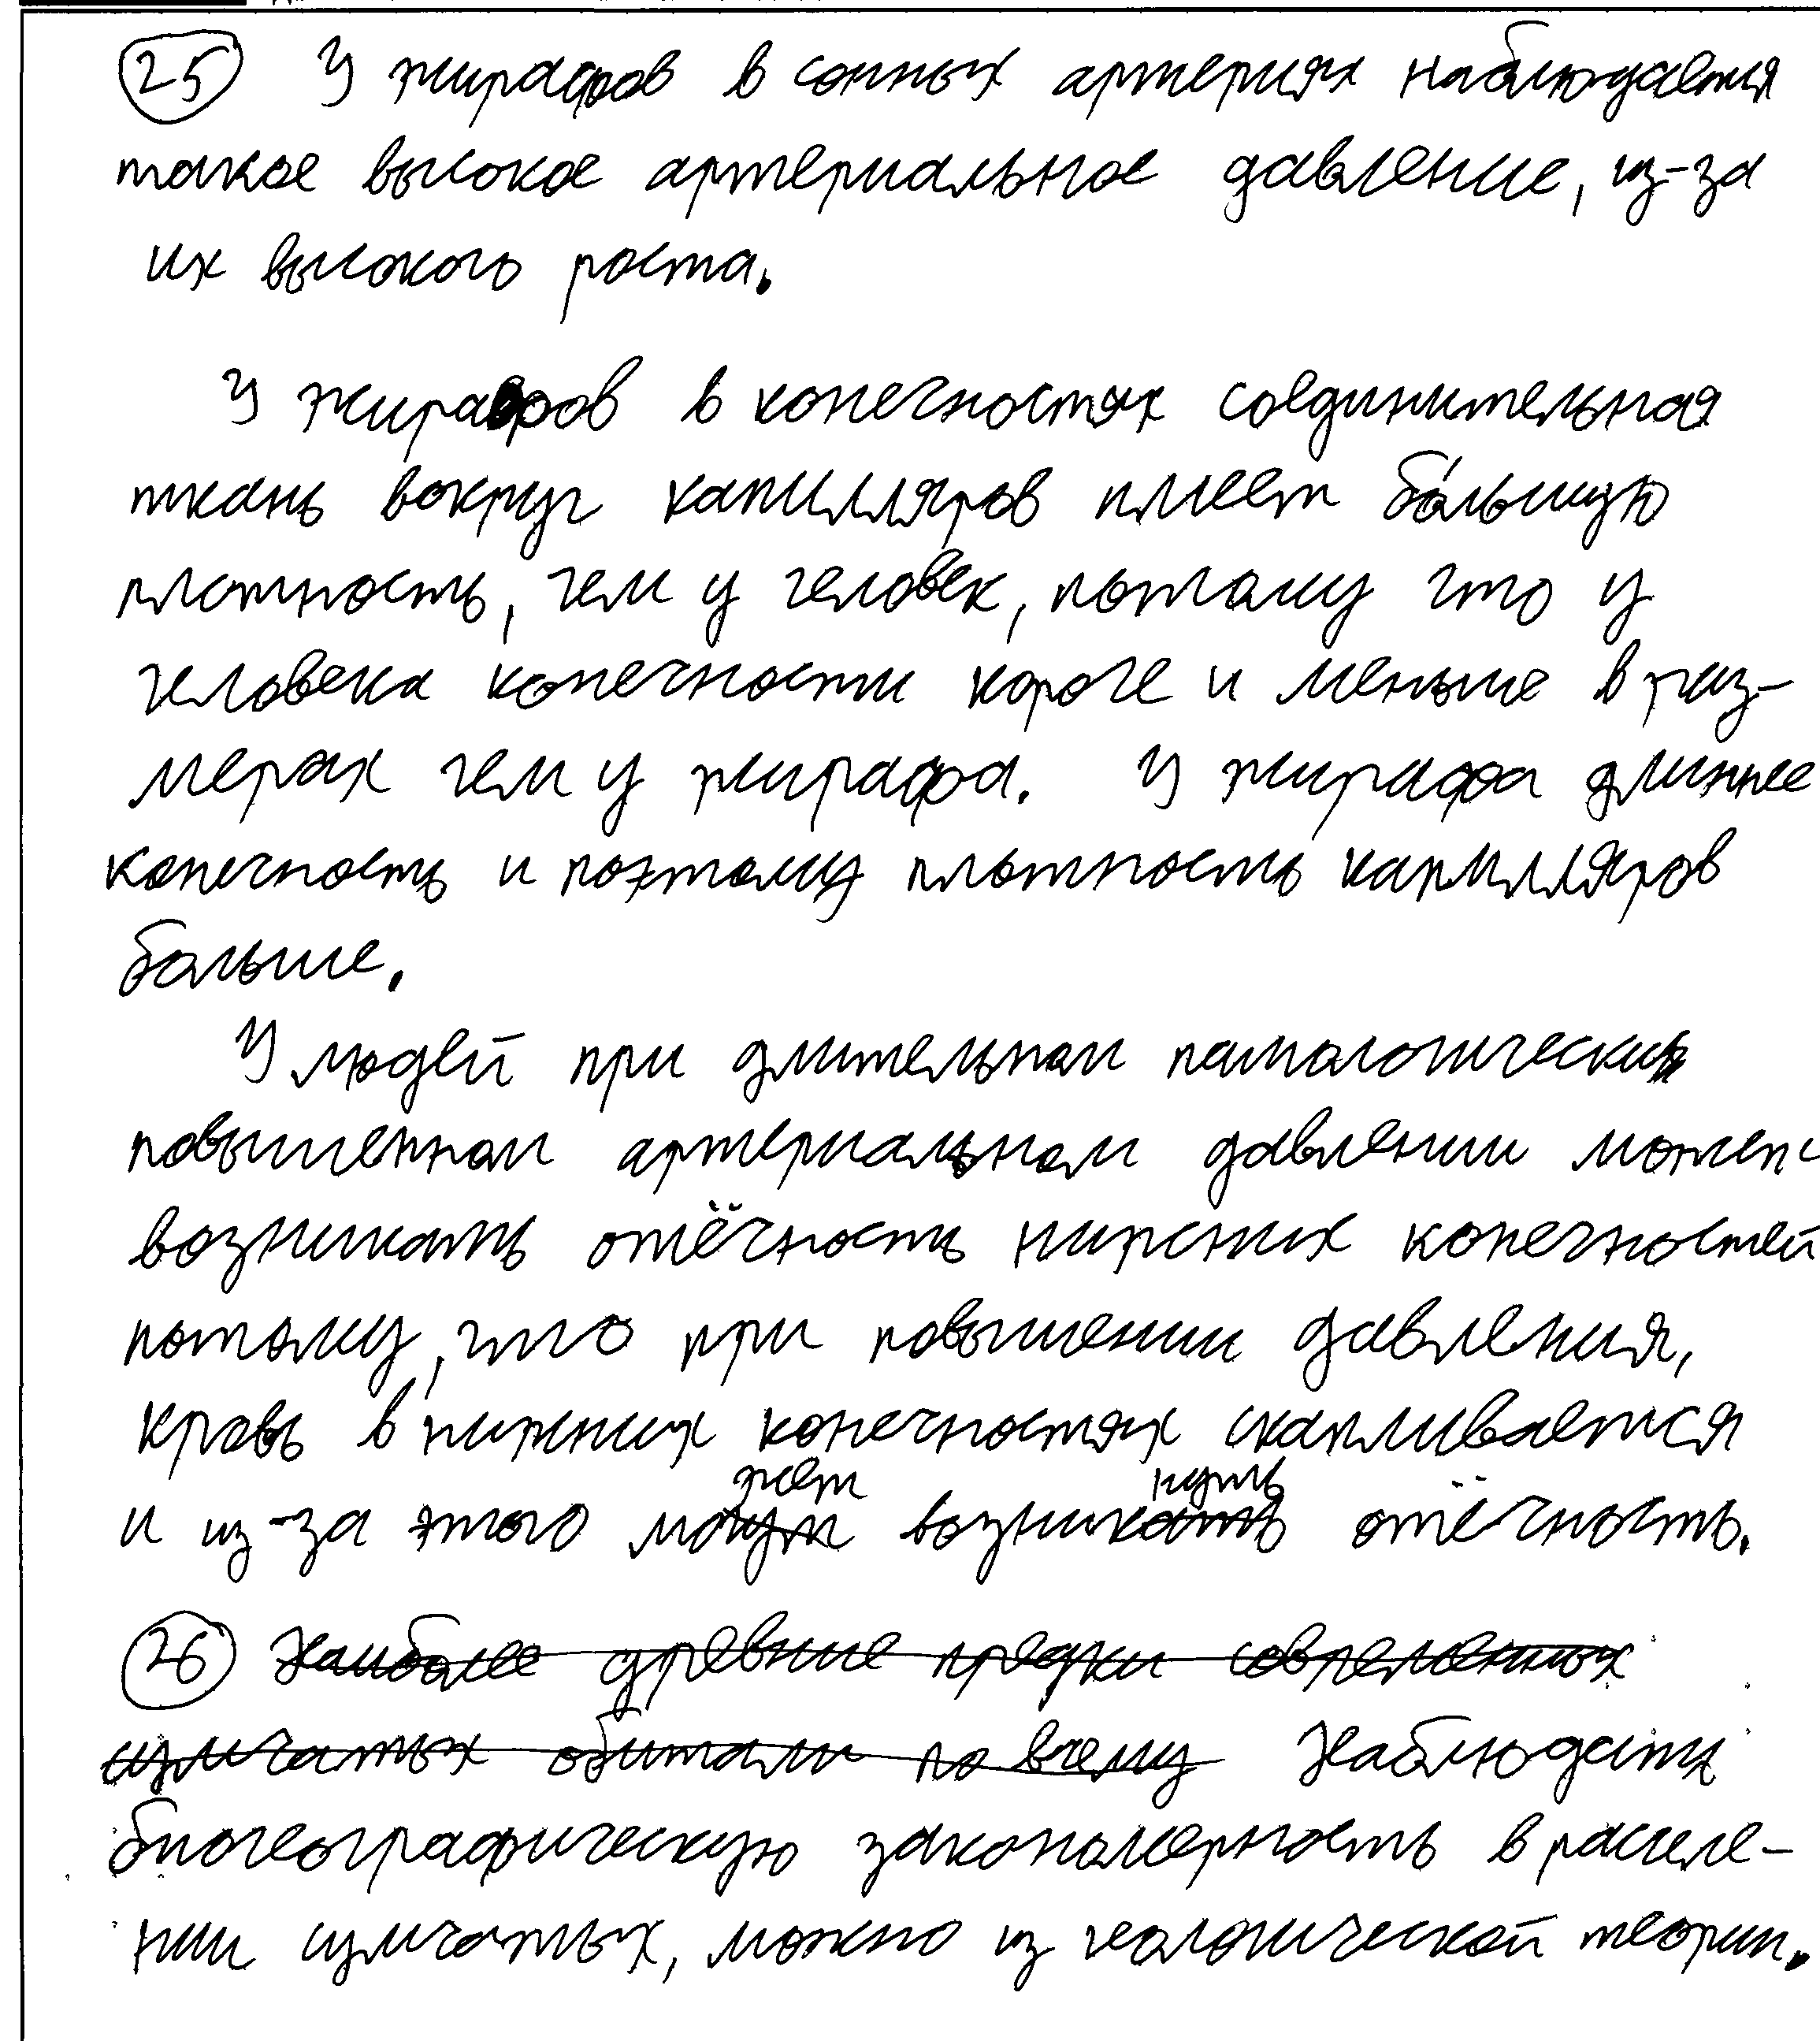 25 У жирафов в сонных артериях наблюдается
такое высокое артериальное давление, из-за
их высокого роста.
У жирафов в конечностях соединительная
ткань вокруг капилляров имеет большую
плотность, чем у человек, потому что у
человека конечности короче и меньше в раз-
мерах чем у жирафа. У жирафа длиннее
конечность и поэтому плотность капилляров
больше.
У людей при длительном патологически
повышенном артериальном давлении может
возникать отёчность нижних конечностей
потому, что при повышении давления,
кровь в нижних конечностях скапливается
и из-за этого может возникнуть отёчность.
26 Наиболее древние предки современных
сумчатых обитали по всему Наблюдать
биогеографическую закономерность в расселе-
нии сумчатых, можно из геологической теории.